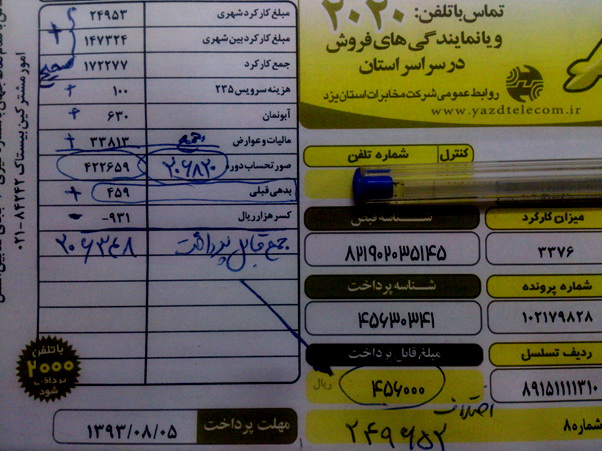 تماس با تلفن: ۲۰۲۰
و یا نمایندگی های فروش
در سراسر استان
روابط عمومی شرکت مخابرات استان یزد
www.yazdtelecom.ir
مبلغ کارکرد شهری ۲۴۹۵۳
مبلغ کارکرد بین شهری ۱۴۷۳۲۴
جمع کارکرد ۱۷۲۲۷۷ صحیح
هزینه سرویس ۲۳۵ ۱۰۰ +
آبونمان ۶۳۰ +
مالیات و عوارض ۳۳۸۱۳ +
صورتحساب دوره ۲۰۶۸۲۰ ۴۲۲۶۵۹
بدهی قبلی ۴۵۹ +
کسر هزار ریال ۹۳۱- -
جمع قابل پرداخت ۲۰۶۳۴۸
کنترل شماره تلفن
میزان کارکرد
۳۳۷۶
شناسه قبض
۸۲۱۹۰۲۰۳۵۱۴۵
شماره پرونده
۱۰۲۱۷۹۸۲۸
شناسه پرداخت
۴۵۶۳۰۳۴۱
ردیف تسلسل
۸۹۱۵۱۱۱۱۳۱۰
مبلغ قابل پرداخت
۴۵۶۰۰۰ ریال
شماره ۸۰
اختلاف
۲۴۹۶۵۲
مهلت پرداخت ۱۳۹۳/۰۸/۰۵
با تلفن
۲۰۰۰
پرداخت
شود
امور مشترکین بیستاک ۸۴۲۴۲-۰۲۱